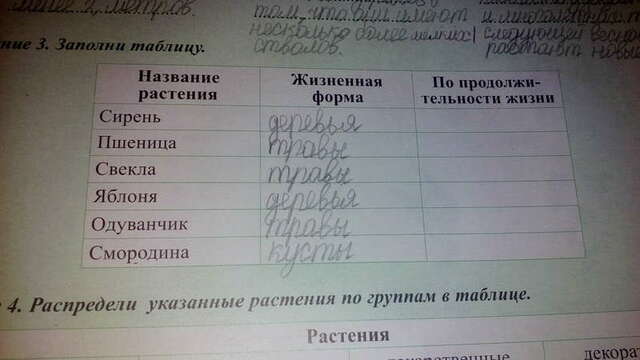 менее 2 метров.
том, что они имеют
несколько более мелких
стволов.
ние 3. Заполни таблицу.
Название растения
Жизненная форма
По продолжи-
тельности жизни
Сирень деревья
Пшеница травы
Свекла травы
Яблоня деревья
Одуванчик травы
Смородина кусты
4. Распредели указанные растения по группам в таблице.
Растения